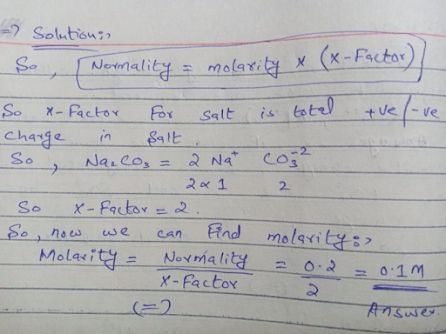 => Solution:>
So, Normality = molarity x (x-Factor)
So x-Factor For salt is total +ve/-ve
charge in salt.
So, Na₂CO₃ = 2 Na⁺ CO₃⁻²
2x1 2
So x-Factor = 2.
So, now we can Find molarity:>
Molarity = Normality / x-Factor = 0.2 / 2 = 0.1M
(=>) Answer